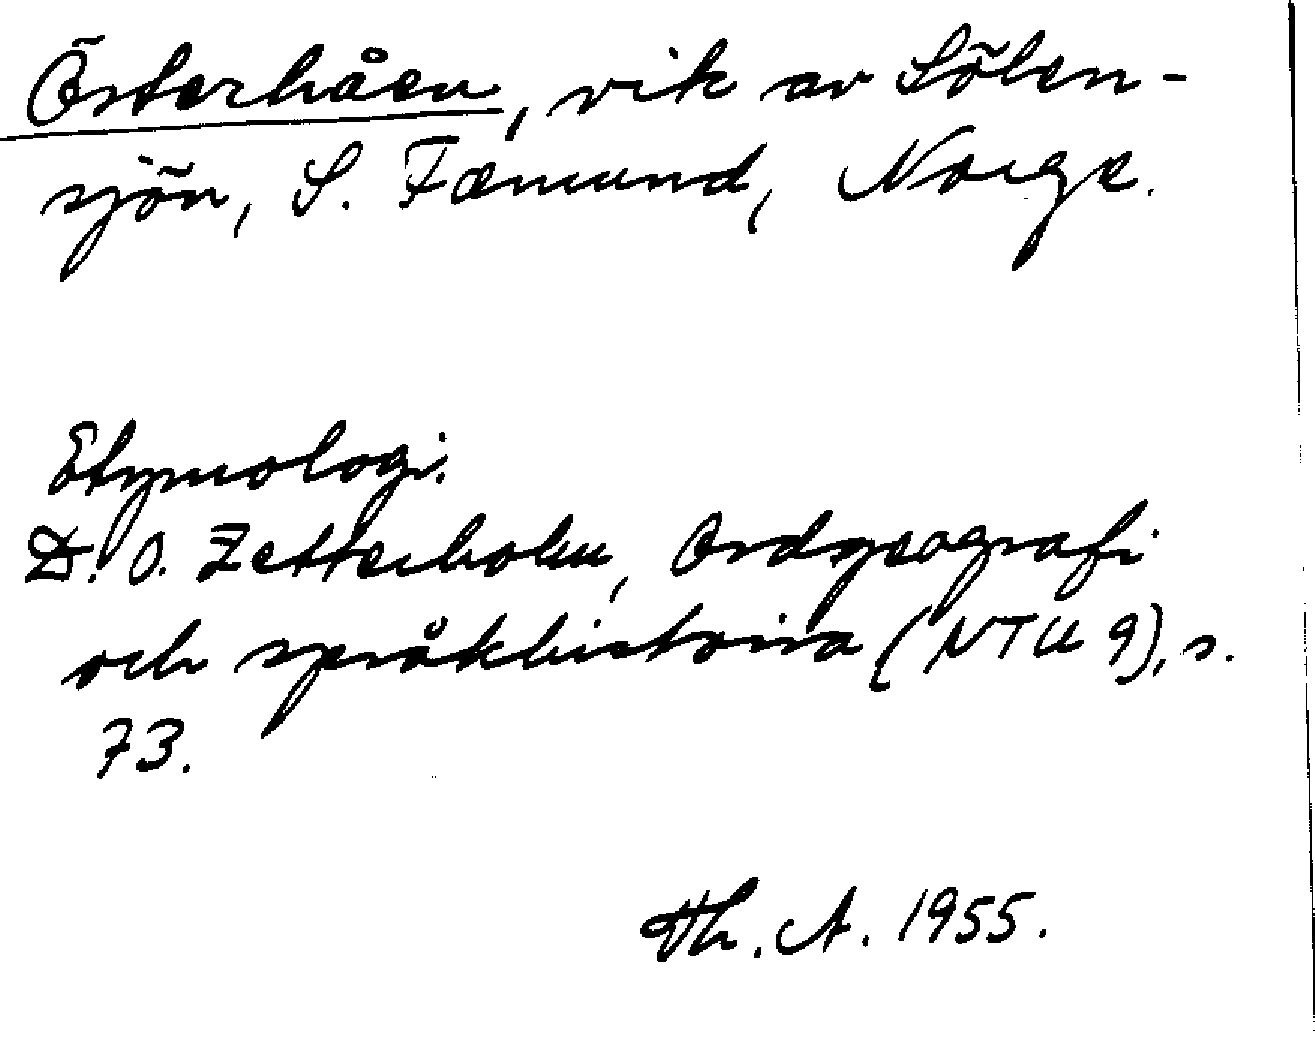 Österhåen, vik av Sölen-
sjön, S. Fæmund, Norge.
Etymologi.
D. O. Zetterholm, Ordgeografi
och språkhistoria (NTU 9), s.
73.
Th. A. 1955.